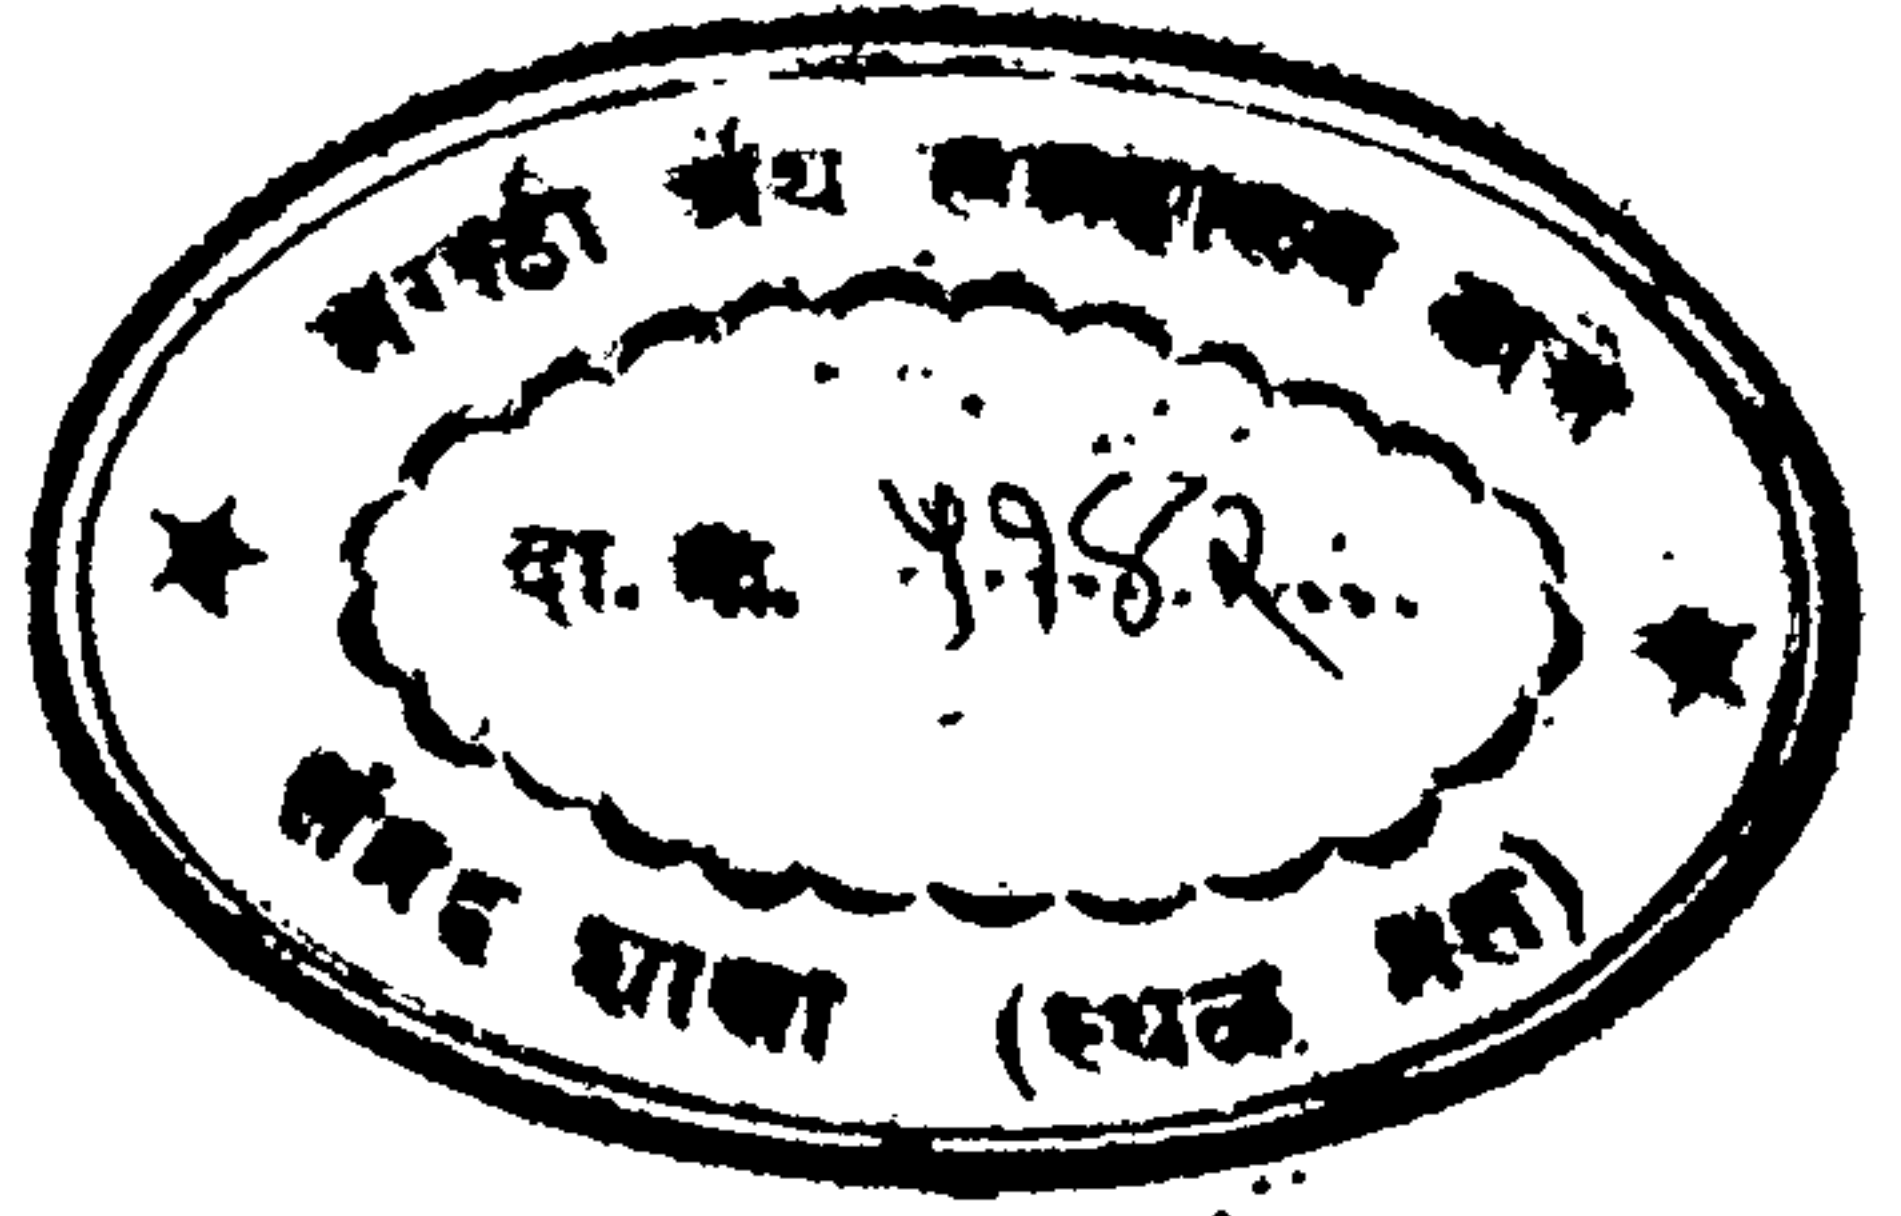 मराठी ग्रंथ संग्रहालय ठाणें
दा. क्र. ५१४२
शाखा (स्थळ. प्रत)